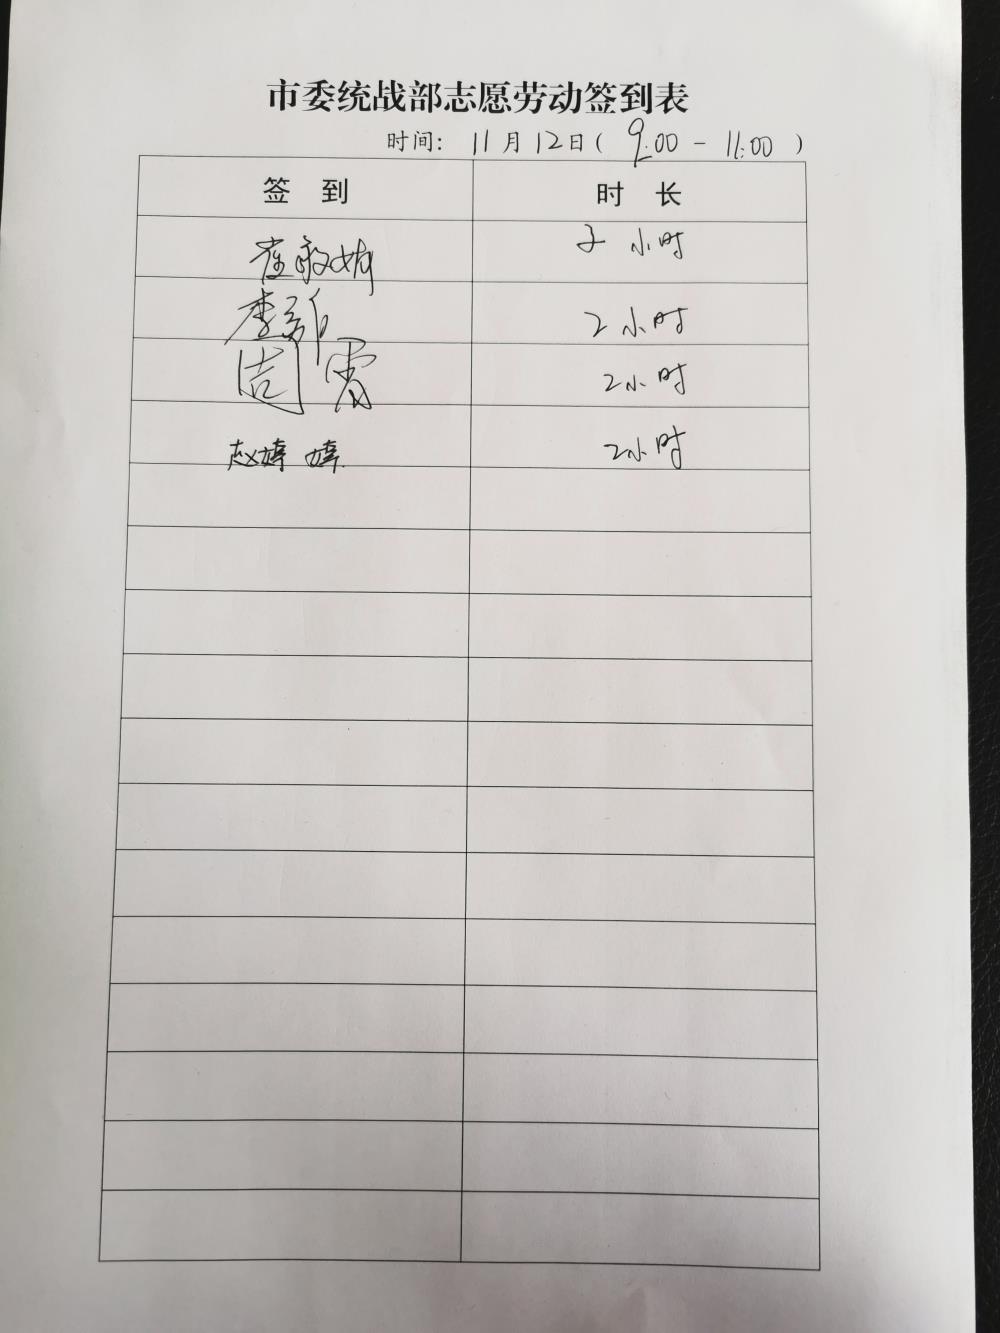 市委统战部志愿劳动签到表
时间： 11月12日（ 9:00 - 11:00 ）
签 到 时 长
崔 小时
李 2小时
周雷 2小时
赵婷婷 2小时